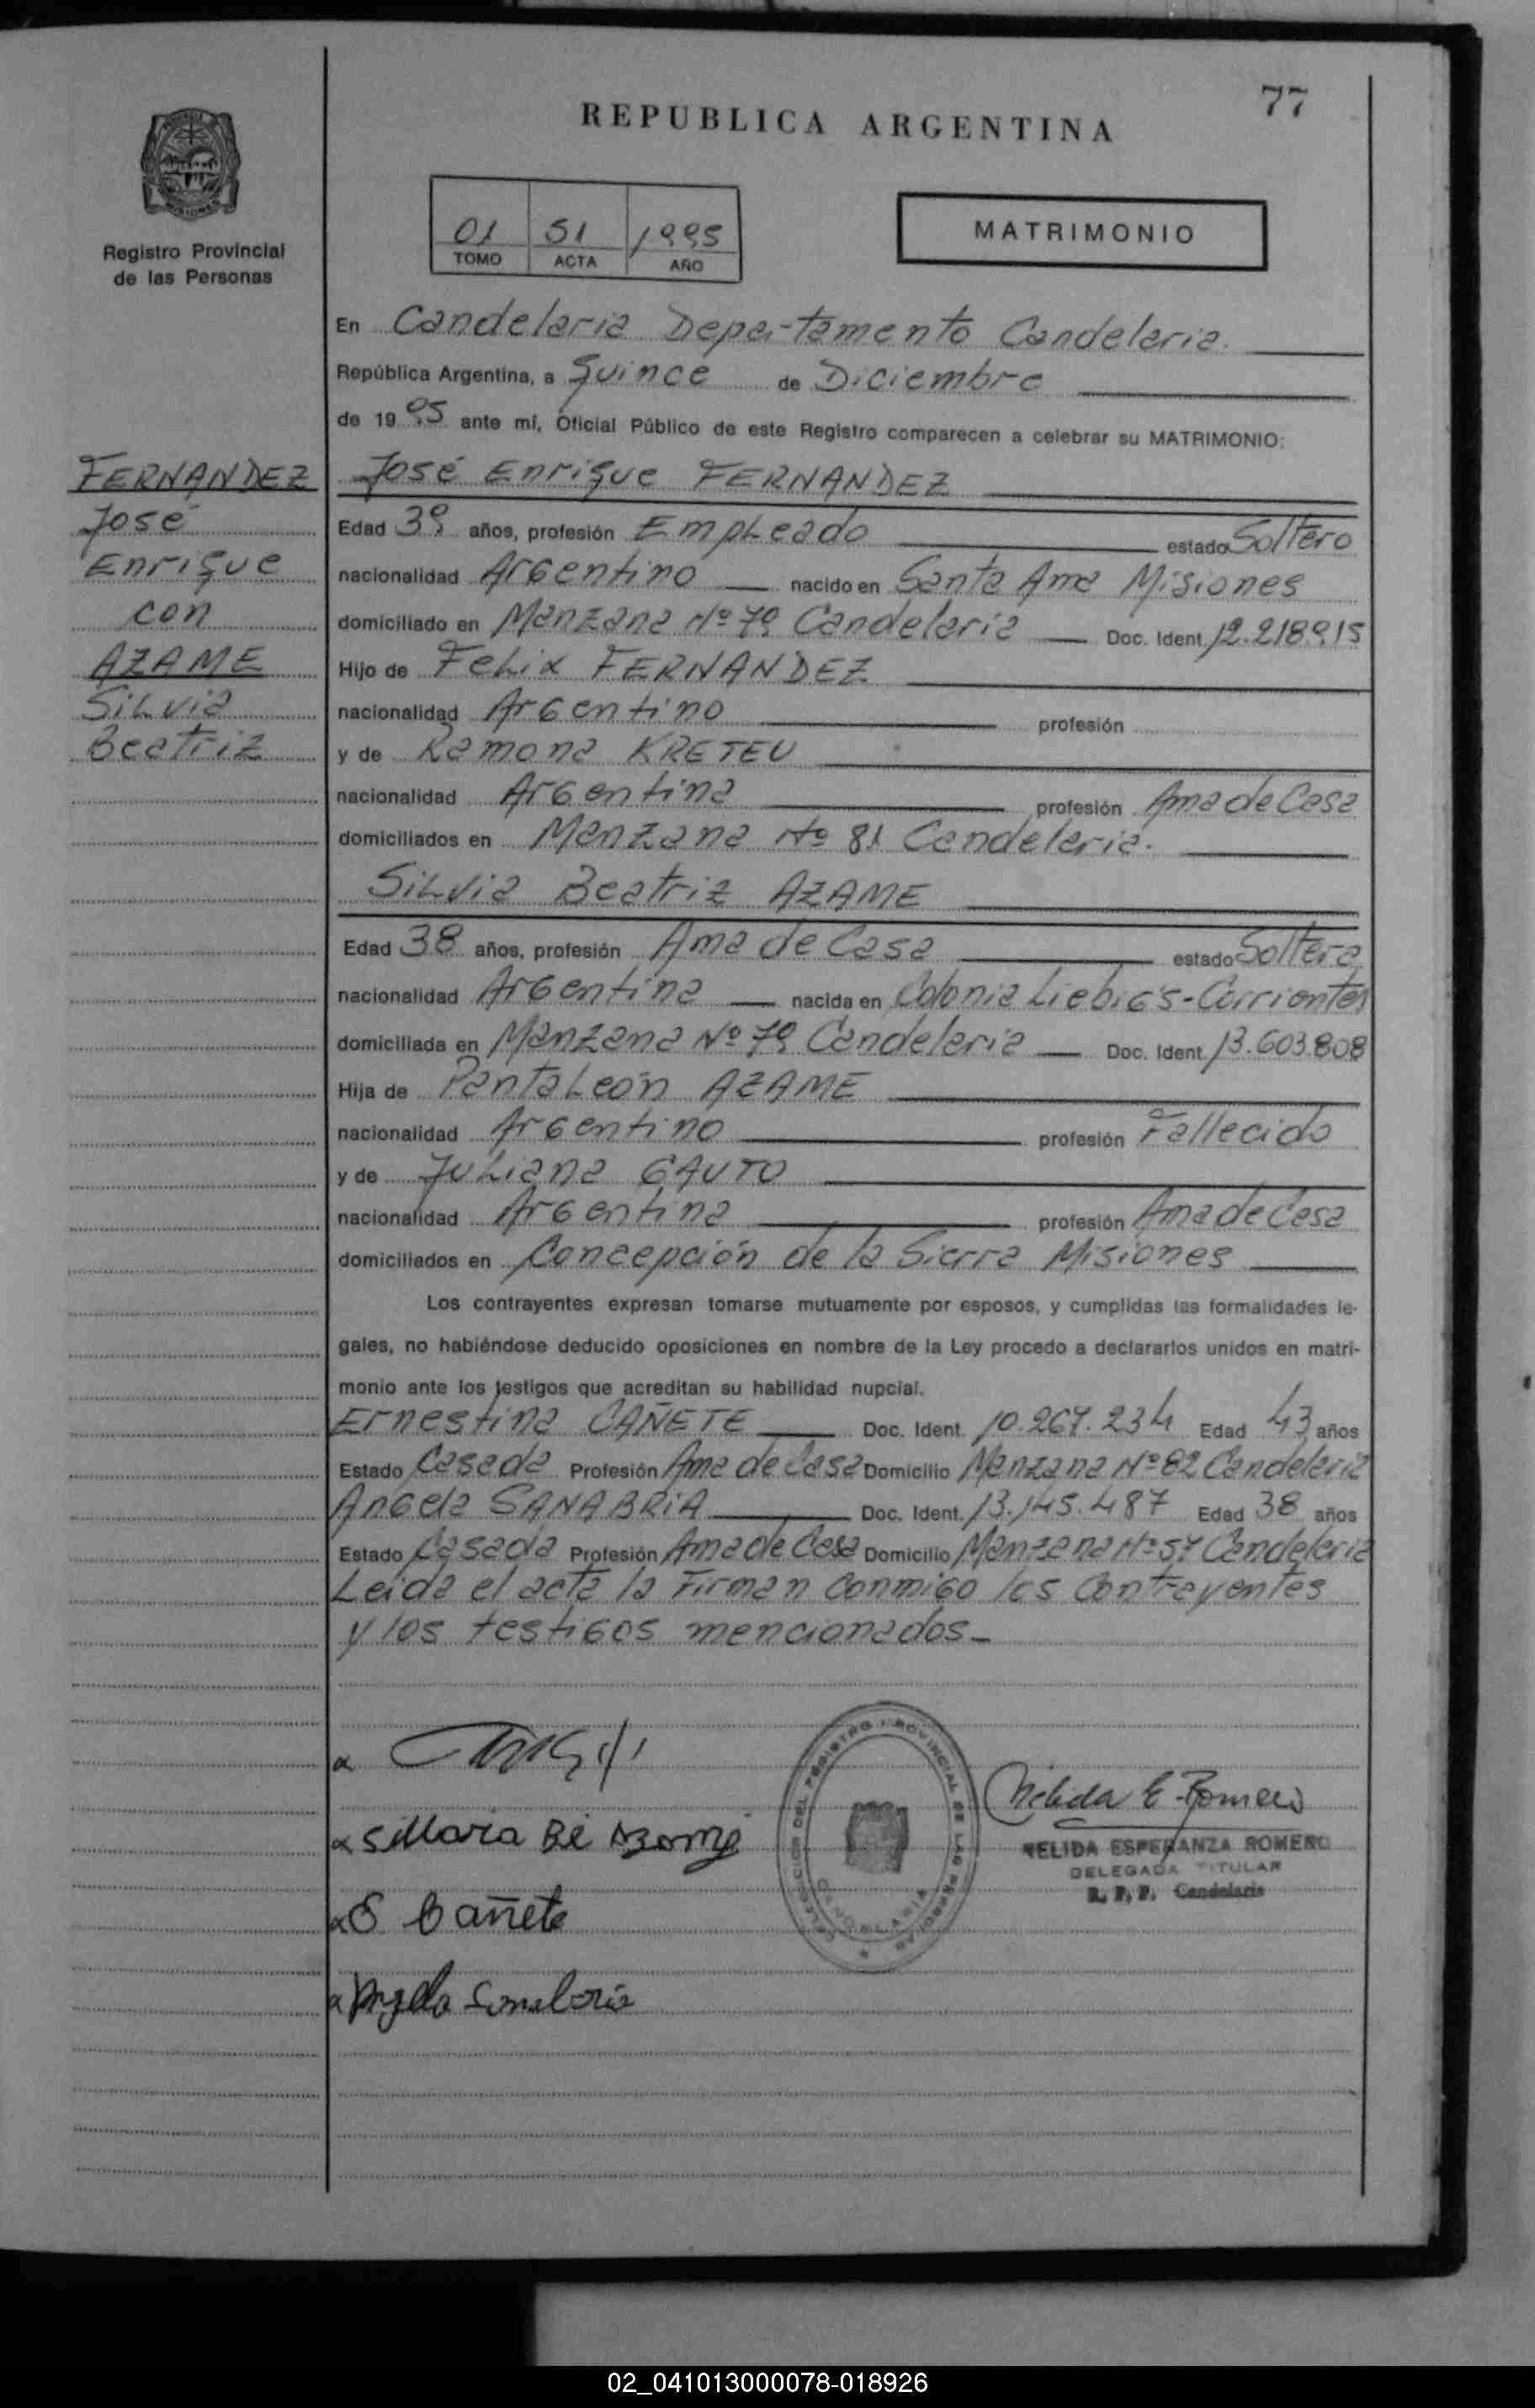 77
REPUBLICA ARGENTINA
Registro Provincial
de las Personas
01 51 1995
TOMO ACTA AÑO
MATRIMONIO
En Candelaria Departamento Candelaria.
República Argentina, a Quince de Diciembre
de 1995 ante mí, Oficial Público de este Registro comparecen a celebrar su MATRIMONIO:
FERNANDEZ
José
Enrique
con
AZAME
Silvia
Beatriz
José Enrique FERNANDEZ
Edad 39 años, profesión Empleado estado Soltero
nacionalidad Argentino nacido en Santa Ana Misiones
domiciliado en Manzana Nº 79 Candelaria Doc. Ident. 12.218915
Hijo de Felix FERNANDEZ
nacionalidad Argentino profesión
y de Ramona KRETEU
nacionalidad Argentina profesión Ama de Casa
domiciliados en Manzana Nº 81 Candelaria.
Silvia Beatriz AZAME
Edad 38 años, profesión Ama de Casa estado Soltera
nacionalidad Argentina nacida en Colonia Liebig's-Corrientes
domiciliada en Manzana Nº 79 Candelaria Doc. Ident. 13.603.808
Hija de Pantaleón AZAME
nacionalidad Argentino profesión Fallecido
y de Juliana GAUTO
nacionalidad Argentina profesión Ama de Casa
domiciliados en Concepción de la Sierra Misiones
Los contrayentes expresan tomarse mutuamente por esposos, y cumplidas las formalidades le-
gales, no habiéndose deducido oposiciones en nombre de la Ley procedo a declararlos unidos en matri-
monio ante los testigos que acreditan su habilidad nupcial.
Ernestina CAÑETE Doc. Ident. 10.267.234 Edad 43 años
Estado Casada Profesión Ama de Casa Domicilio Manzana Nº 82 Candelaria
Angela SANABRIA Doc. Ident. 13.145.487 Edad 38 años
Estado Casada Profesión Ama de Casa Domicilio Manzana Nº 57 Candelaria
Leida el acta la Firman conmigo los Contrayentes
y los testigos mencionados.
E Cañete
Angela Sanabria
DELEGACION DEL REGISTRO PROVINCIAL DE LAS PERSONAS
CANDELARIA
Nélida E. Romero
NELIDA ESPERANZA ROMERO
DELEGADA TITULAR
R. P. P. Candelaria
02_041013000078-018926